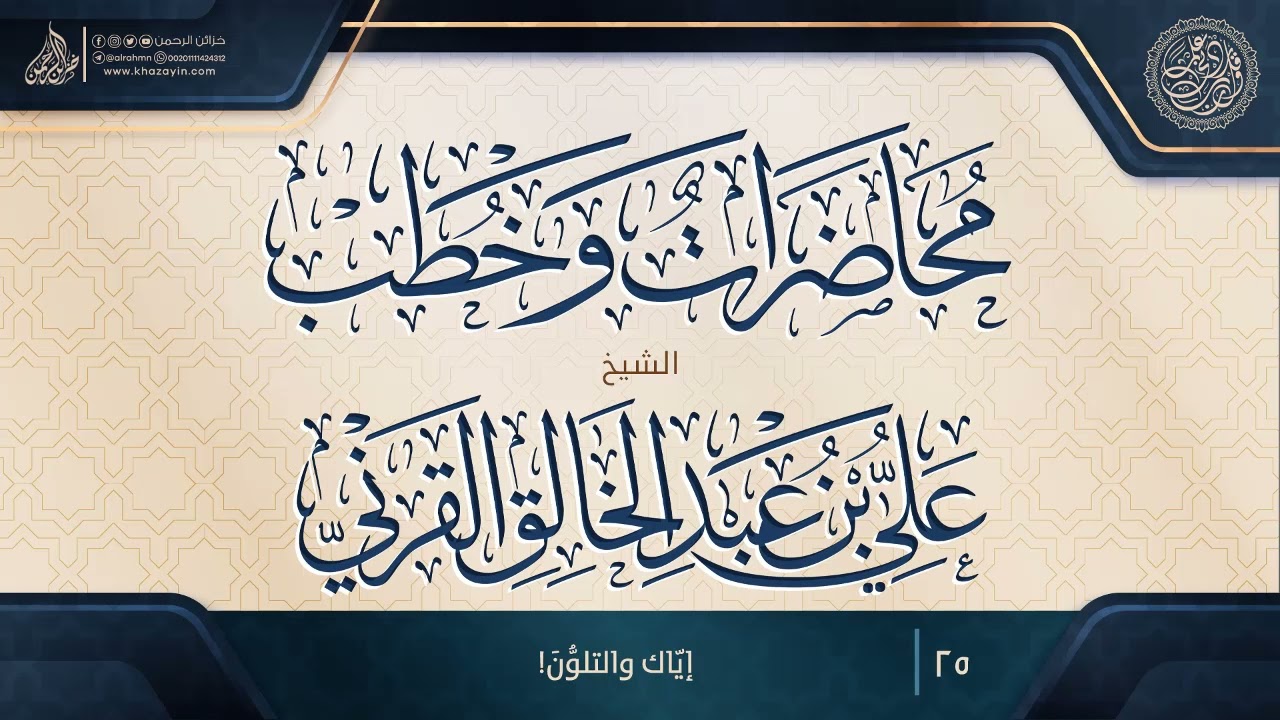 خزائن الرحمن
@alrahmn 00201111424312
www.khazayin.com
خزائن الرحمن
مُحَاضَرَاتٌ وَخُطَب
الشيخ
عَلِيُّ بْنُ عَبْدِ الْخَالِقِ القَرْنِيّ
٢٥
إيّاك والتلوُّنَ!